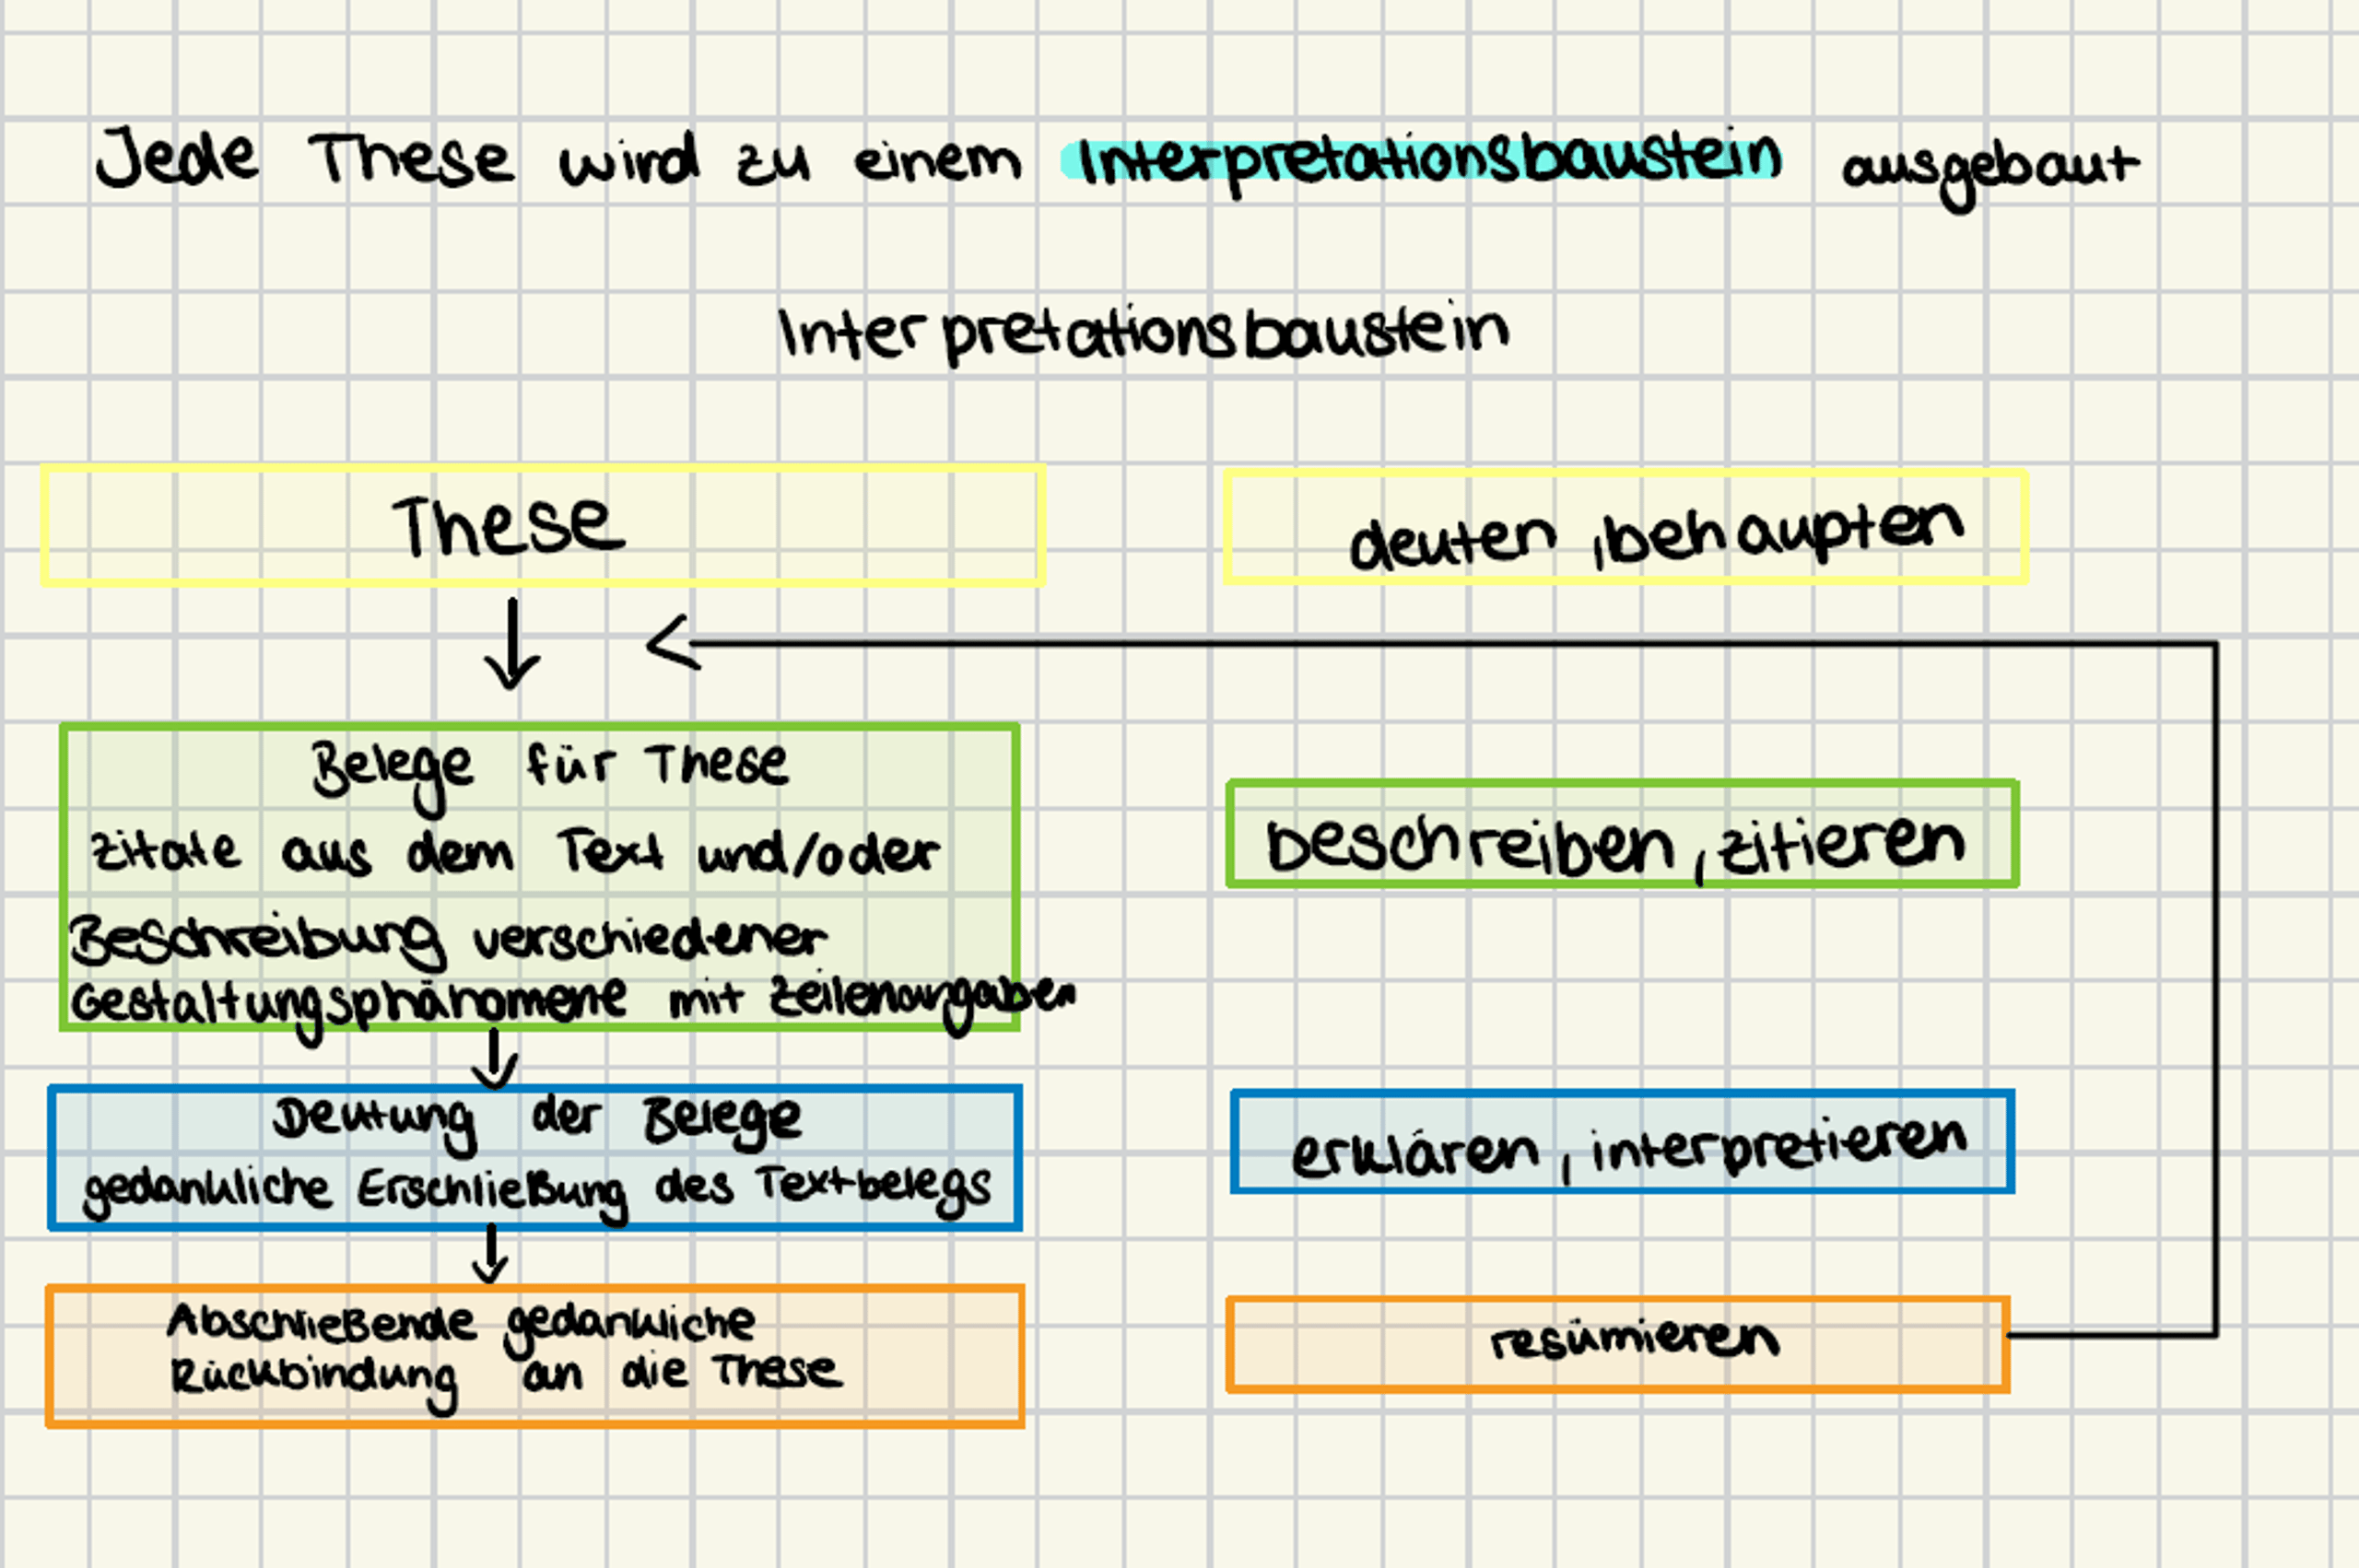 Jede These wird zu einem Interpretationsbaustein ausgebaut
Interpretationsbaustein
These
deuten, behaupten
Belege für These
Zitate aus dem Text und/oder
Beschreibung verschiedener
Gestaltungsphänomene mit Zeilenangaben
beschreiben, zitieren
Deutung der Belege
gedankliche Erschließung des Textbelegs
erklären, interpretieren
Abschließende gedankliche
Rückbindung an die These
resümieren